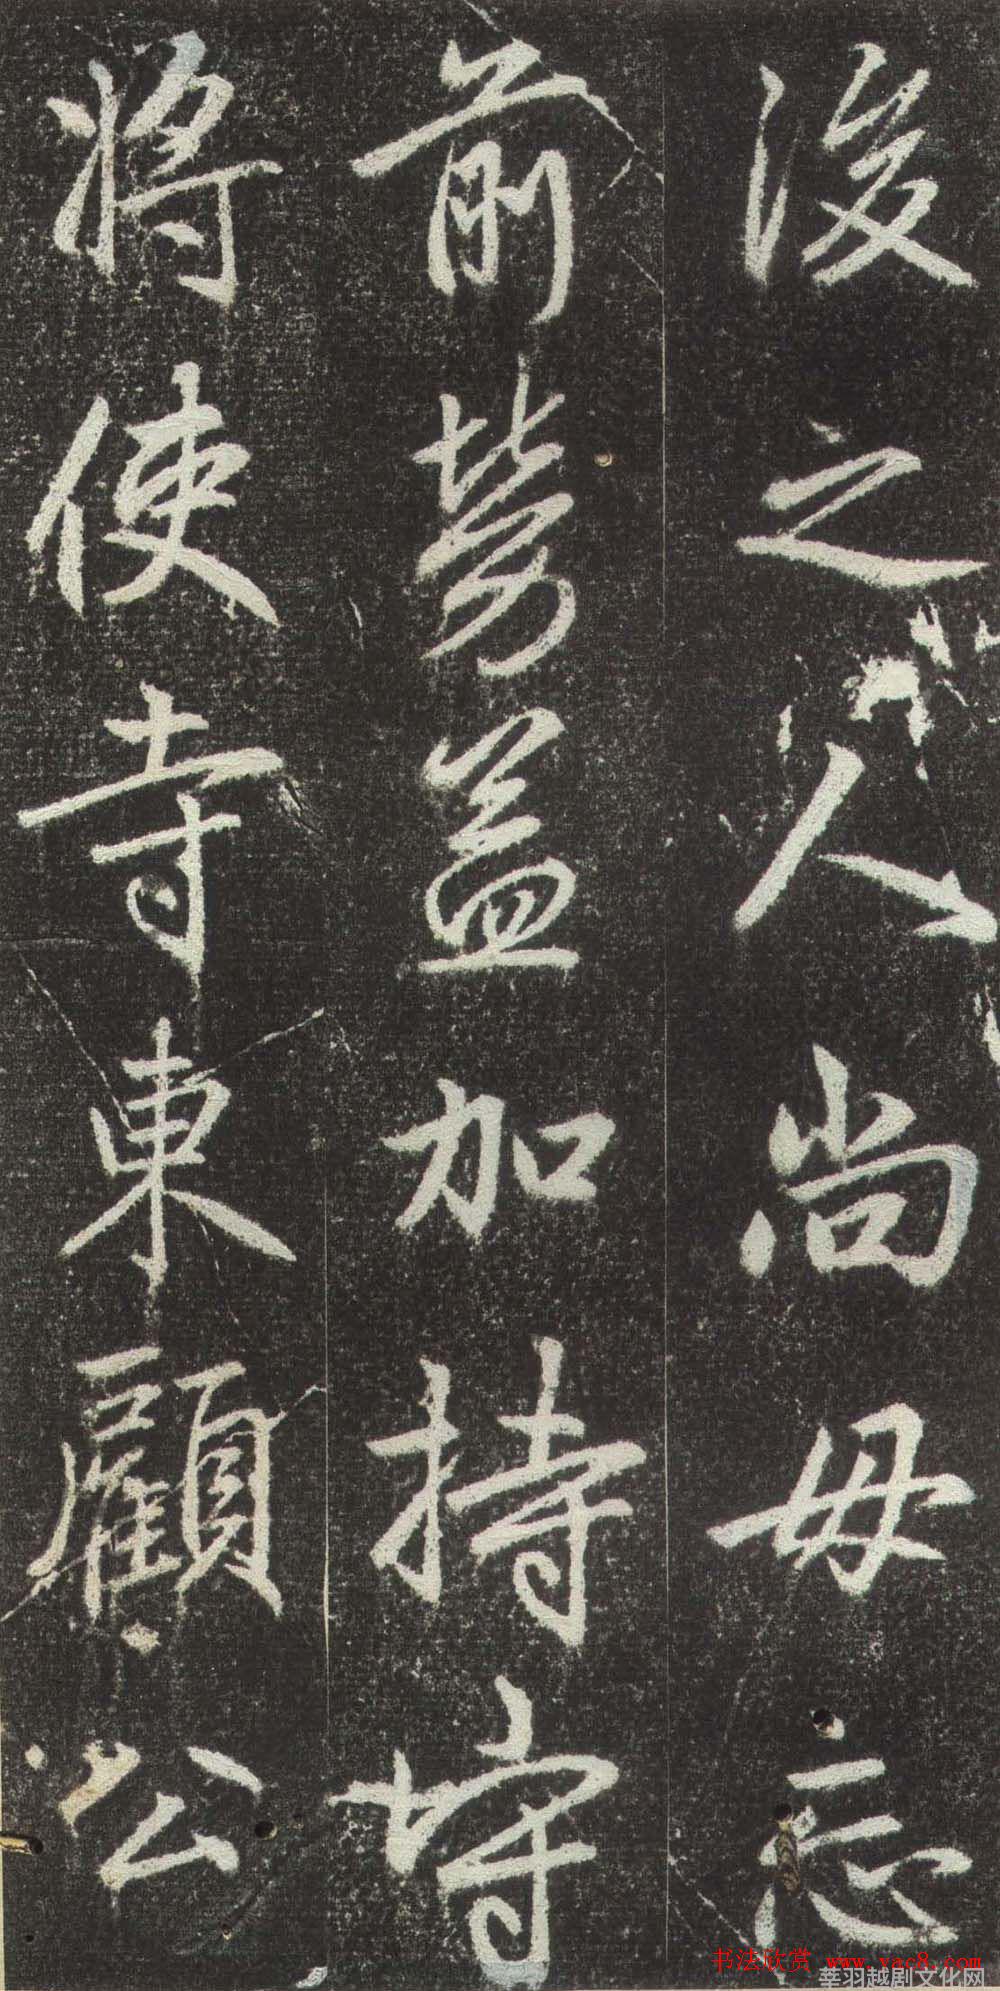 後之人尚毋忘
前勞益加持守
將使寺東顧公
书法欣赏 www.yac8.com
越剧文化网